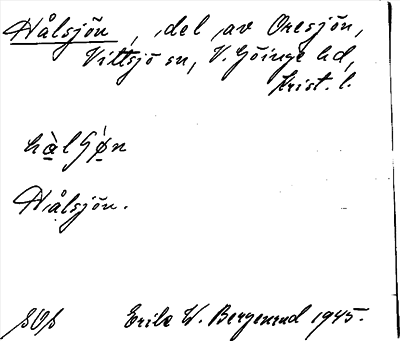 Hålsjön, del av Oresjön,
Vittsjö sn, V. Göinge hd,
Krist. l.
Hålsjön.
Erik W. Bergenrud 1945.